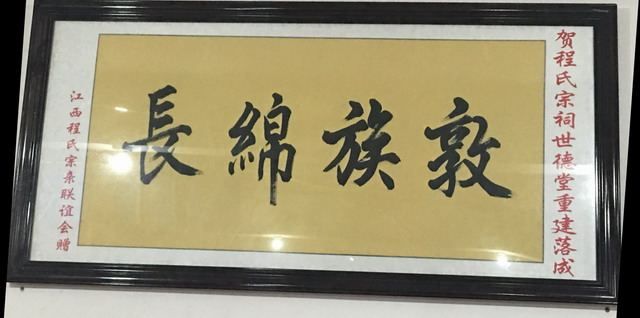 贺程氏宗祠世德堂重建落成
敦族綿長
江西程氏宗亲联谊会赠